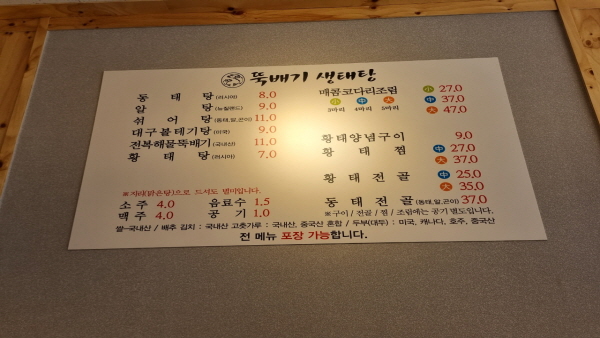 뚝배기 생태탕
동태탕(러시아) 8.0
알탕(뉴질랜드) 9.0
섞어탕(동태,알,곤이) 11.0
대구볼테기탕(미국) 9.0
전복해물뚝배기(국내산) 11.0
황태탕(러시아) 7.0
※지리(맑은탕)으로 드셔도 별미입니다.
소주 4.0 음료수 1.5
맥주 4.0 공기 1.0
매콤코다리조림 小 27.0
小 中 大 中 37.0
3마리 4마리 5마리 大 47.0
황태양념구이 9.0
황태찜 中 27.0
大 37.0
황태전골 中 25.0
大 35.0
동태전골(동태,알,곤이) 37.0
※구이/전골/찜/조림에는 공기 별도입니다.
쌀-국내산 / 배추 김치 : 국내산 고춧가루 : 국내산, 중국산 혼합 / 두부(대두) : 미국, 캐나다, 호주, 중국산
전 메뉴 포장 가능합니다.